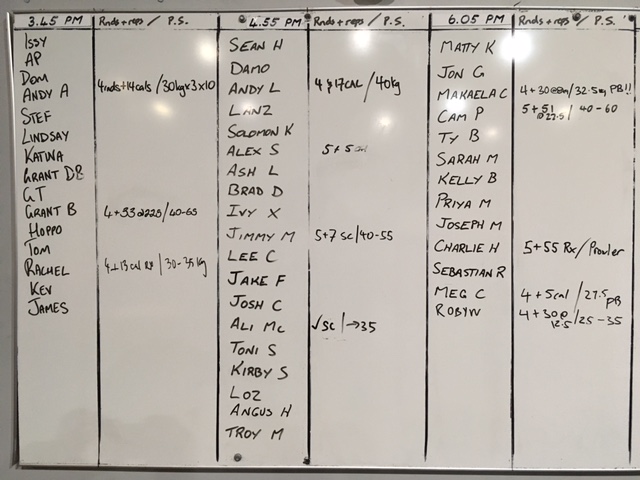 3.45 PM Rnds + reps / P.S.
Issy
AP
Dom
Andy A 4rnds+14cals/30kg×3×10
Stef
Lindsay
Katina
Grant DB
GT
Grant B 4+53@22.5/40-65
Hoppo
Tom
Rachel 4+13cal Rx/30-35kg
Kev
James
4.55 PM Rnds + reps / P.S.
Sean H
Damo
Andy L 4 + 17cal/40kg
Lanz
Solomon K
Alex S 5+5cal
Ash L
Brad D
Ivy X
Jimmy M 5+7 sc/40-55
Lee C
Jake F
Josh C
Ali Mc √sc/→35
Toni S
Kirby S
Loz
Angus H
Troy M
6.05 PM Rnds + reps / P.S.
Matty K
Jon G
Makaela C 4+30 /32.5kg PB!!
Cam P 5+51 @22.5 / 40-60
Ty B
Sarah M
Kelly B
Priya M
Joseph M
Charlie H 5+55 Rx/Prowler
Sebastian R
Meg C 4+5cal/27.5 PB
Robyn 4+30@12.5/25-35